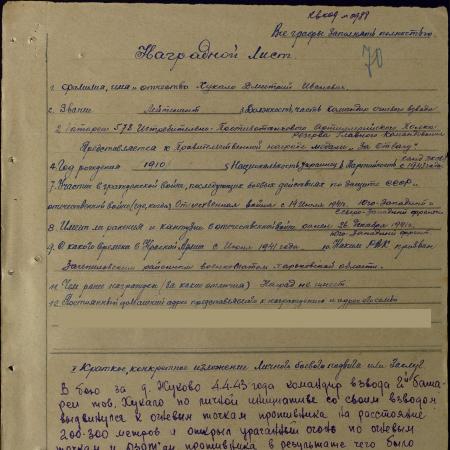 Все графы заполнять полностью.
70
Наградной Лист.
1. Фамилия, имя и отчество Хукало Дмитрий Иванович.
2. Звание Лейтенант 3. Должность, часть командир огневого взвода
2 батареи 578 Истребительно-Противотанкового Артиллерийского Полка
Резерва Главного Командования
Представляется к Правительственной награде медали „За отвагу“
4. Год рождения 1910 5 Национальность украинец 6 Партийность канд. ВКП(б)
с 1943 года
7. Участие в гражданской войне, последующих боевых действиях по защите СССР и
отечественной войне (где, когда) Отечественная война с 14 июля 1941г. Юго-Западный и
Северо-Западный фронт
8. Имеет ли ранения и контузии в отечественной войне ранен 26 декабря 1941г.
Юго-Западный фронт
9. С какого времени в Красной Армии с Июля 1941 года 10 Каким РВК призван
районным военкоматом Харьковской области.
11. Чем ранее награжден (за какие отличия) Наград не имеет
12. Постоянный домашний адрес представляемого к награждению и адрес его семьи
I Краткое, конкретное изложение личного боевого подвига или заслуг
В бою за д. Жуково 4.4.43 года командир взвода 2й бата-
реи тов. Хукало по личной инициативе со своим взводом
выдвинулся к огневым точкам противника на расстояние
200-300 метров и открыл ураганный огонь по огневым
точкам и ДЗОТ'ам противника в результате чего было